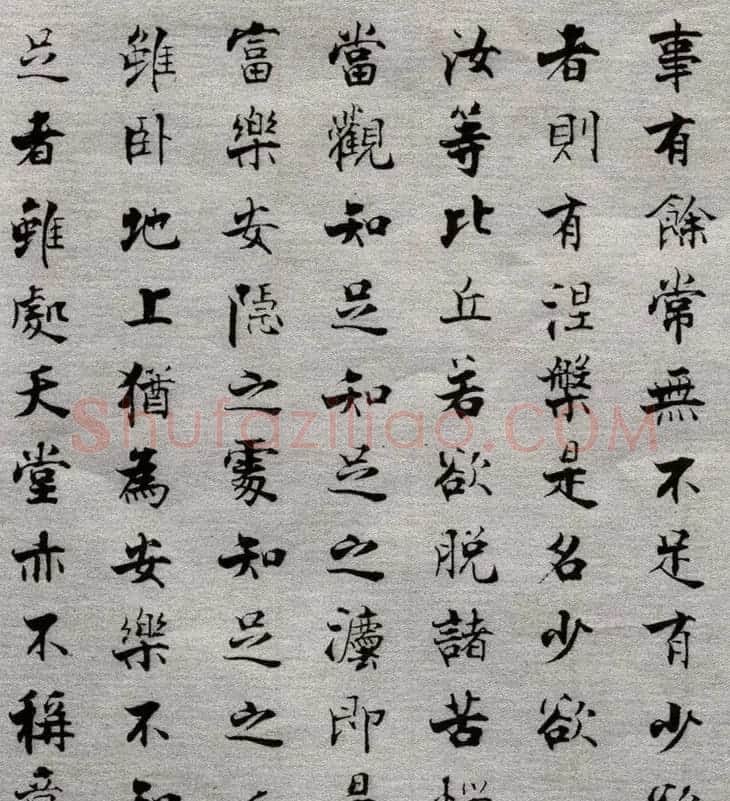 事有餘常無不足有少
者則有涅槃是名少欲
汝等比丘若欲脫諸苦
當觀知足知足之灋即
富樂安隱之處知足之
雖卧地上猶為安樂不
足者雖處天堂亦不稱
Shufaziliao.COM